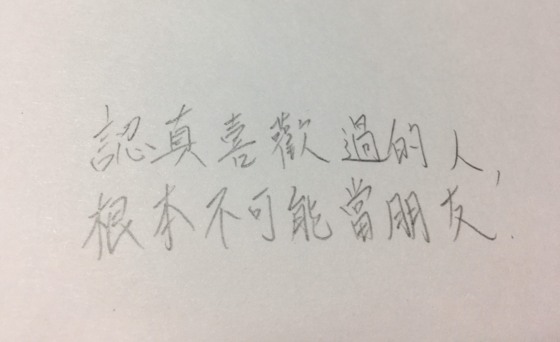 認真喜歡過的人,
根本不可能當朋友.